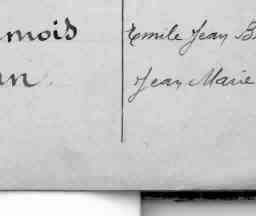 mois
Emile Jean B
Jean Marie